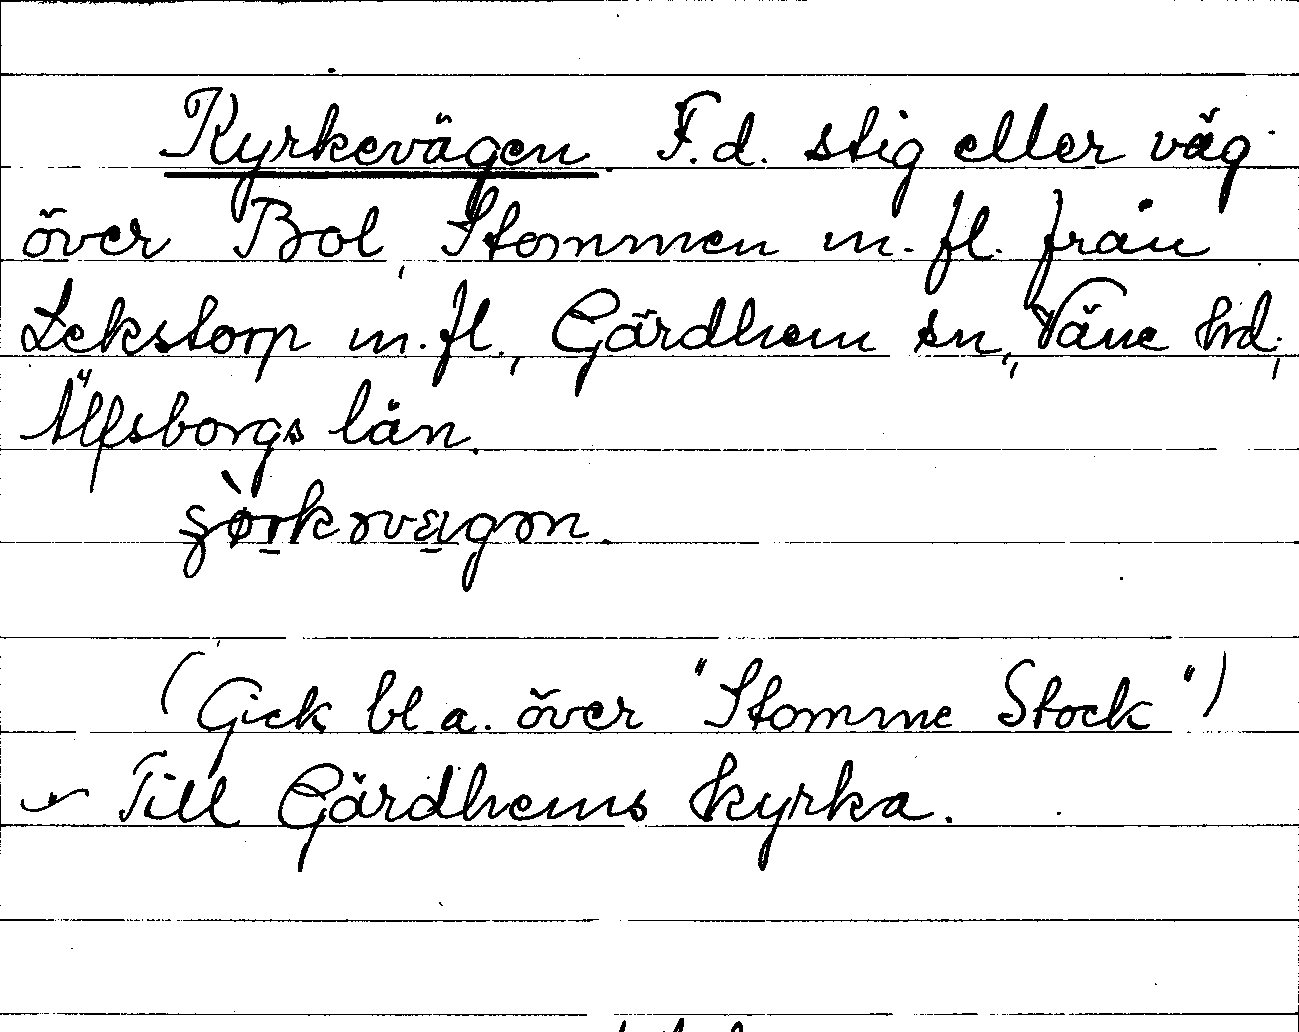 Kyrkevägen. F.d. stig eller väg
över Bol, Stommen m.fl. från
Lekstorp m.fl., Gärdhem sn, Väne hd,
Älfsborgs län.
(Gick bl.a. över "Stomme Stock")
Till Gärdhems kyrka.